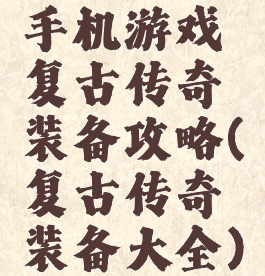 手机游戏
复古传奇
装备攻略(
复古传奇
装备大全)